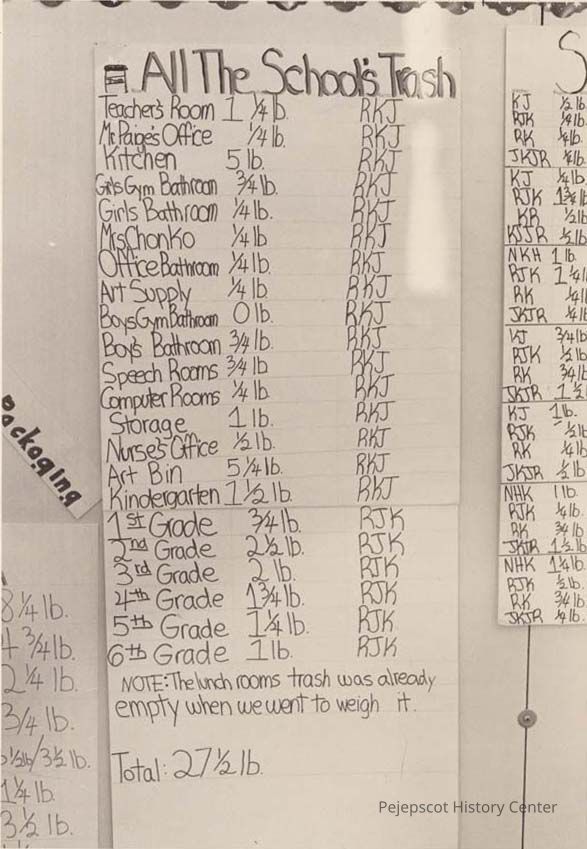 All The School's Trash
Teacher's Room 1 1/4 lb. RKJ
Mr Paige's Office 1/4 lb. RKJ
Kitchen 5 lb. RKJ
Girls Gym Bathroom 3/4 lb. RKJ
Girls' Bathroom 1/4 lb. RKJ
Mrs Chonko 1/4 lb RKJ
Office Bathroom 1/4 lb. RKJ
Art Supply 1/4 lb. RKJ
Boys Gym Bathroom 0 lb. RKJ
Boys' Bathroom 3/4 lb. RKJ
Speech Rooms 3/4 lb RKJ
Computer Rooms 1/4 lb. RKJ
Storage 1 lb. RKJ
Nurse's Office 1/2 lb. RKJ
Art Bin 5 1/4 lb. RKJ
Kindergarten 1 1/2 lb. RKJ
1st Grade 3/4 lb. RJK
2nd Grade 2 1/2 lb. RJK
3rd Grade 2 lb. RJK
4th Grade 1 3/4 lb. RJK
5th Grade 1 1/4 lb. RJK
6th Grade 1 lb. RJK
NOTE: The lunch rooms trash was already
empty when we went to weigh it.
Total: 27 1/2 lb.
Packaging
8 1/4 lb.
4 3/4 lb.
2 1/4 lb.
3/4 lb.
1/2 lb/3 1/2 lb.
1 1/4 lb.
3 1/2 lb.
S
KJ 1/2 lb
RJK 1/4 lb
RK 1/4 lb
JKJR 1/4 lb
KJ 1/4 lb.
RJK 1 3/4 lb
KR 1/2 lb
KJJR 1/2 lb
NKH 1 lb.
RJK 1 1/4 l
RK 1/4 l
JKJR 1/4 l
KJ 3/4 lb
RJK 1/2 lb
RK 3/4 lb
JKJR 1 1/2
KJ 1 lb.
RJK 1/2 lb
RK 1/4 lb
JKJR 1/2 lb
NHK 1 lb.
RJK 1/4 lb.
RK 3/4 lb
JKJR 1 1/2 lb
NHK 1 1/4 lb.
RJK 1/2 lb.
RK 3/4 lb
JKJR 1/4 lb.
Pejepscot History Center